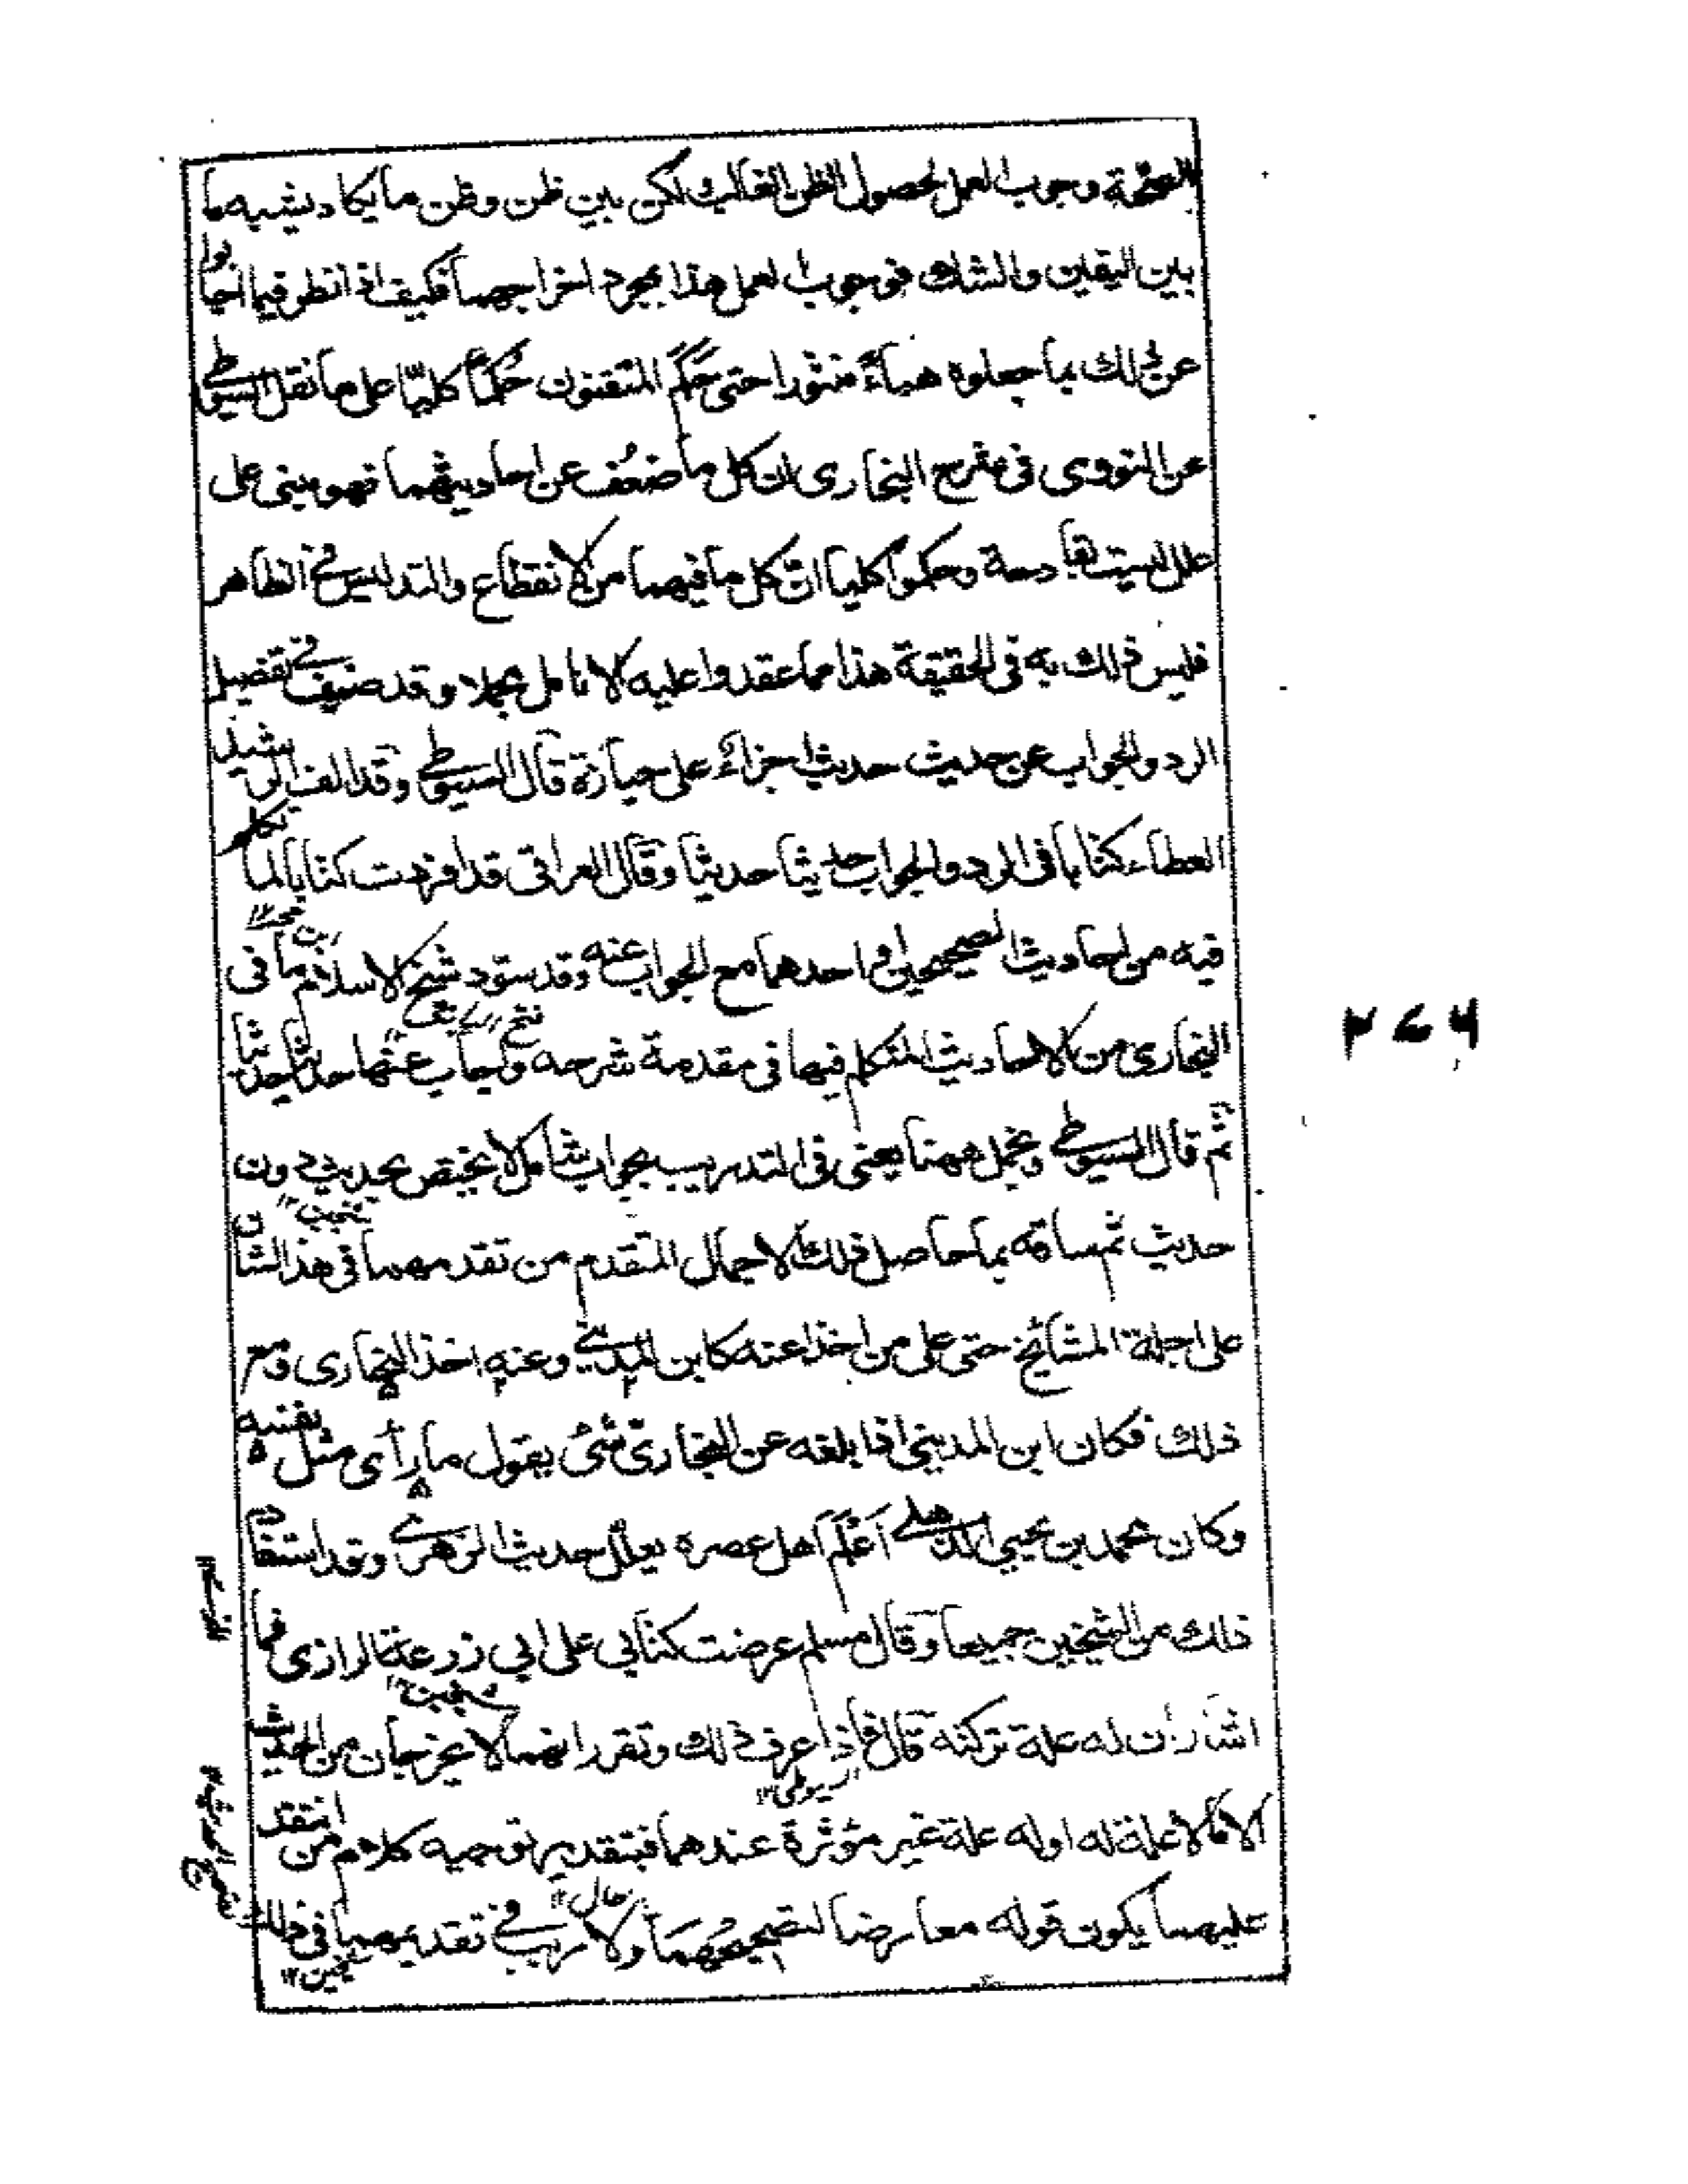 وجوب العمل لحصول الظن الغالب لكن بين ظن وظن ما يكاد يشبه ما
بين اليقين والشك فوجوب العمل هذا بمجرد اخراجهما فكيف اذا نظر فيما اجابوا
عن ذلك بما جعلوه هباءً منثورا حتى حَكَمَ المتقنون حُكمًا كليًّا على ما نقل السيوطي
عن النووى فى شرح البخارى ان كل ما ضُعِّف عن احاديثهما فهو مبنى على
علل ليست بقادحة وحكموا كليا انّ كل ما فيهما من الانقطاع والتدليس في الظاهر
فليس ذلك به فى الحقيقة هذا مما عقدوا عليه الانامل مجملا وقد صنف في تفصيل
الرد والجواب عن حديث حديث اجزاءً على حيازة قال السيوطي وقد الف الرشيد
العطار كتابا فى الرد والجواب حديثا حديثا وقال العراقى قد افردت كتابا لما تكلم
فيه من احاديث الصحيحين او احدهما مع الجواب عنه وقد سوّد شيخ الاسلام ما فى
البخارى من الاحاديث المتكلم فيها فى مقدمة شرحه واجاب عنها حديثا حديثا
ثم قال السيوطي ونجمل ههنا يعنى فى التدريب بجواب شامل لا يختص بحديث دون
حديث ثم ساقه بما حاصل ذلك الاجمال المتقدم من تقدمهما فى هذا الشان
على اجلة المشائخ حتى على من اخذا عنه كابن المديني وعنه اخذ البخارى ومع
ذلك فكان ابن المدينى اذا بلغه عن البخارى شئ يقول ما رأى مثل نفسه
وكان محمد بن يحيى الذهلي اَعْلَمَ اهل عصره بعلل حديث الزهري وقد استفاد
ذلك من الشيخين جميعا وقال مسلم عرضت كتابى على ابى زرعة الرازى فما
اشار ان له علة تركته قال فاذا عرف ذلك وتقرر انهما لا يخرجان من الحديث
الا ما لا علة له او له علة غير مؤثرة عندهما فبتقدير توجيه كلام من انتقد
عليهما يكون قوله معارضا لتصحيحهما ولا ريب في تقديمهما فى ذلك
٢٧٦